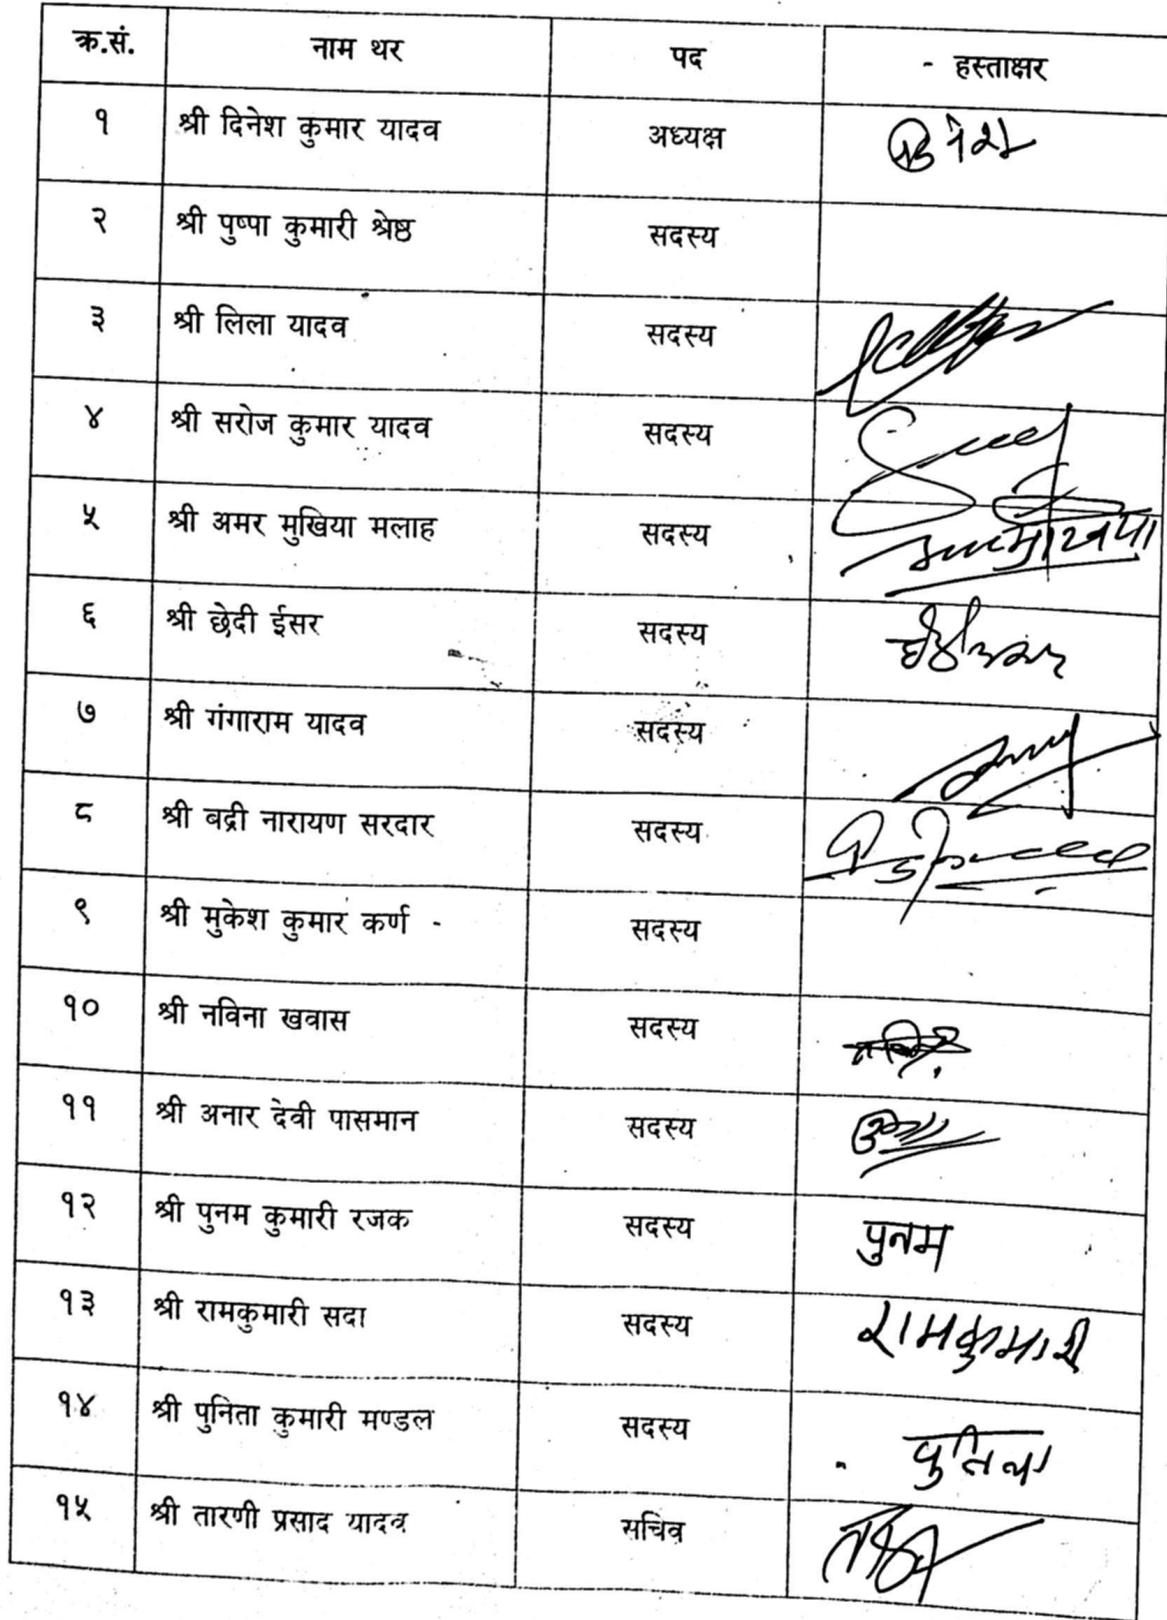 क्र.सं. नाम थर पद - हस्ताक्षर
१ श्री दिनेश कुमार यादव अध्यक्ष दिनेश
२ श्री पुष्पा कुमारी श्रेष्ठ सदस्य
३ श्री लिला यादव सदस्य
४ श्री सरोज कुमार यादव सदस्य
५ श्री अमर मुखिया मलाह सदस्य
६ श्री छेदी ईसर सदस्य
७ श्री गंगाराम यादव सदस्य
८ श्री बद्री नारायण सरदार सदस्य
९ श्री मुकेश कुमार कर्ण - सदस्य
१० श्री नविना खवास सदस्य
११ श्री अनार देवी पासमान सदस्य
१२ श्री पुनम कुमारी रजक सदस्य पुनम
१३ श्री रामकुमारी सदा सदस्य रामकुमारी
१४ श्री पुनिता कुमारी मण्डल सदस्य पुनिता
१५ श्री तारणी प्रसाद यादव सचिव